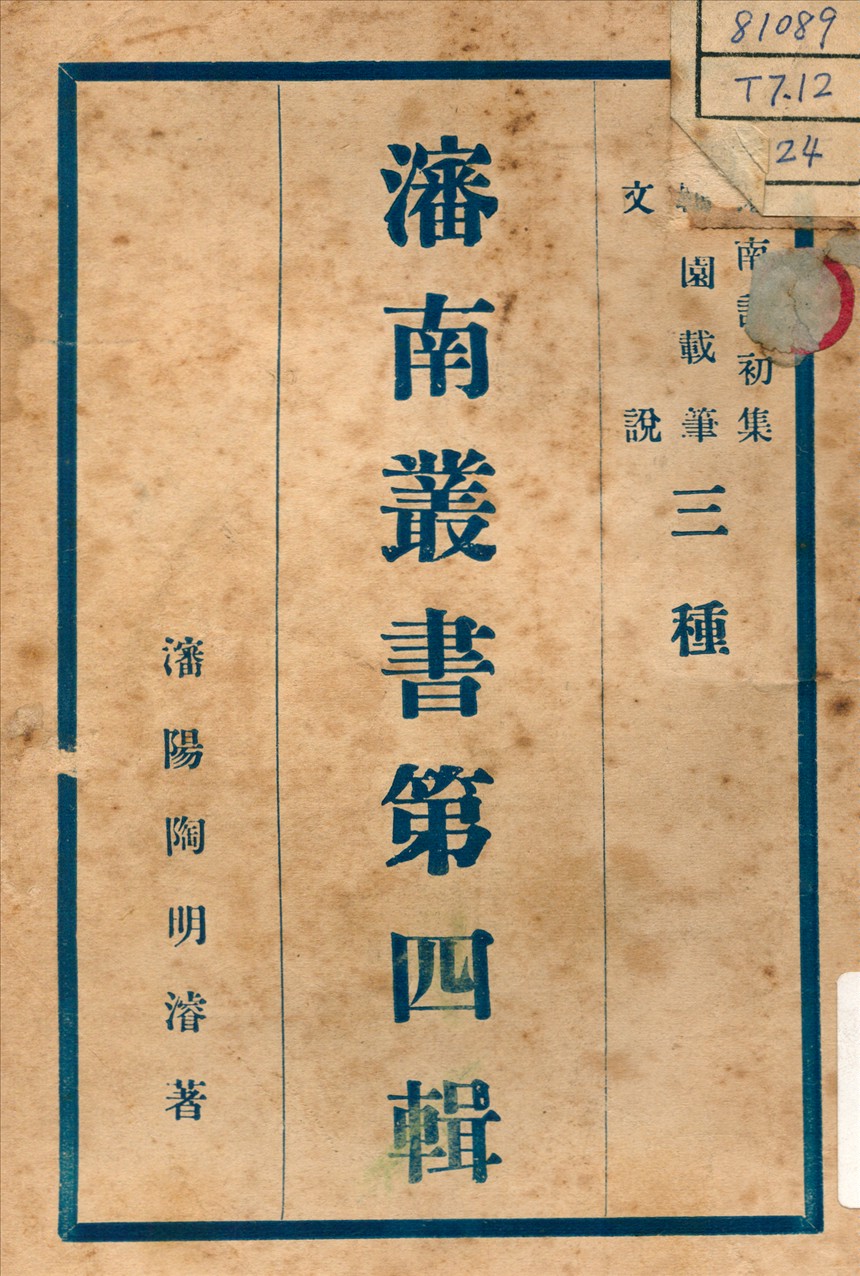 81089
T7.12
24
南 初集
園載筆
文說
三種
瀋南叢書第四輯
瀋陽陶明濬著